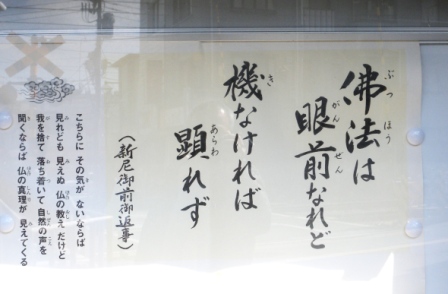 佛法は
眼前なれど
機なければ
顕れず
(新尼御前御返事)
こちらに その気が ないならば
見れども 見えぬ 仏の教えだけど
我を捨て 落ち着いて 自然の声を
聞くならば 仏の真理が 見えてくる